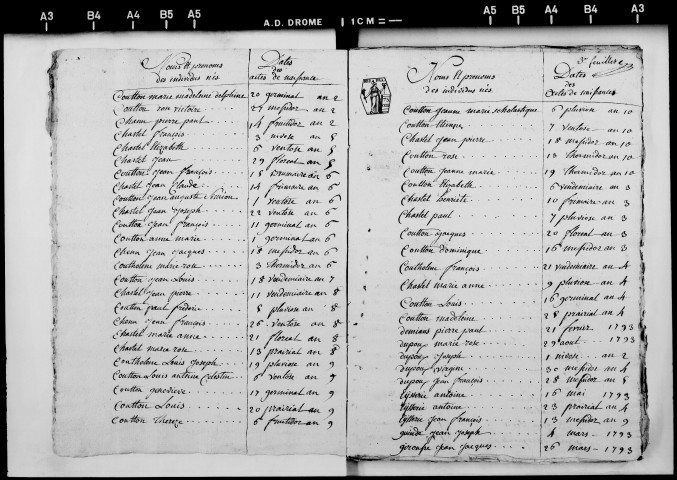 A3 B4 A4 B5 A5 A.D. DROME 1 CM A5 B5 A4 B4 A3
Noms et prenoms
des individus nés
Dates
des
actes de naissance
Coutton marie madeleine delphine 20 germinal an 2
Coutton rose victoire 25 messidor an 2
Chaun pierre paul 14 fructidor an 2
Chastel françois 3 nivose an 5
Chastel Elizabeth 6 ventose an 5
Chastel jean 29 floreal an 5
Coutton jean françois 15 brumaire an 6
Chastel jean Claude 14 frimaire an 6
Coutton jean auguste 1 ventose an 6
Chastel jean joseph 22 ventose an 6
Coutton jean françois 11 germinal an 6
Coutton anne marie 1 germinal an 6
Chaun jean jacques 18 messidor an 6
Coutholene marie rose 3 thermidor an 6
Coutton jean Louis 18 vendemiaire an 7
Chastel jean pierre 11 vendemiaire an 8
Coutton paul frederic 5 pluviose an 8
Chaun jean françois 26 ventose an 8
Chastel marie anne 21 floreal an 8
Chastel marie rose 13 prairial an 8
Coutholene Louis joseph 19 pluviose an 9
Coutton Louis antoine Celestin 6 ventose an 9
Coutton genevieve 17 germinal an 9
Coutton Louis 20 prairial an 9
Coutton Thereze 8 fructidor an 9
3e feuillet
Noms et prenoms
des individus nés
Dates
des
Actes de naissances
Coutton jeanne marie scholastique 6 pluviose an 10
Coutton 7 ventose an 10
Chastel jean pierre 18 messidor an 10
Coutton rose 13 thermidor an 10
Coutton jeanne marie 19 thermidor an 10
Coutton Elizabeth 6 vendemiaire an 3
Chastel henriete 10 frimaire an 3
Chastel paul 7 pluviose an 3
Coutton jacques 20 floreal an 3
Coutton dominique 16 messidor an 3
Coutholene françois 21 vendemiaire an 4
Chastel marie anne 9 pluviose an 4
Coutton Louis 16 germinal an 4
Coutton madeleine 28 prairial an 4
demians pierre paul 21 fevrier 1793
dupoy marie rose 29 aout 1793
dupoy joseph 1 nivose an 2
dupoy virginie 30 messidor an 4
dupoy jean françois 28 messidor an 5
antoine 16 mai 1793
antoine 23 prairial an 4
jean françois 13 messidor an 9
guinde jean joseph 4 mars 1793
girousse jean jacques 26 mars 1793